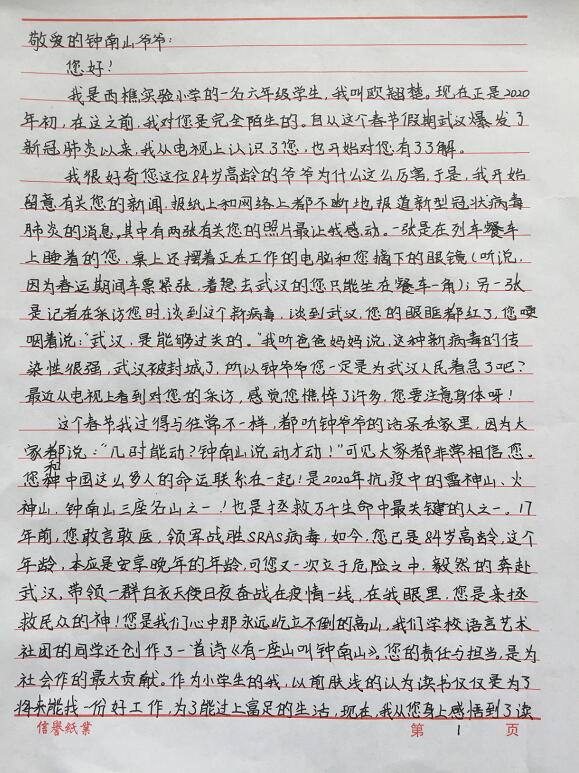 敬爱的钟南山爷爷:
您好!
我是西樵实验小学的一名六年级学生,我叫欧翘楚。现在正是2020
年初,在这之前,我对您是完全陌生的。自从这个春节假期武汉爆发了
新冠肺炎以来,我从电视上认识了您,也开始对您有了了解。
我很好奇您这位84岁高龄的爷爷为什么这么厉害,于是,我开始
留意有关您的新闻,报纸上和网络上都不断地报道新型冠状病毒
肺炎的消息,其中有两张有关您的照片最让我感动。一张是在列车餐车
上睡着的您,桌上还摆着正在工作的电脑和您摘下的眼镜(听说,
因为春运期间车票紧张,着急去武汉的您只能坐在餐车一角);另一张
是记者在采访您时,谈到这个新病毒,谈到武汉,您的眼眶都红了,您哽
咽着说:“武汉,是能够过关的。”我听爸爸妈妈说,这种新病毒的传
染性很强,武汉被封城了,所以钟爷爷您一定是为武汉人民着急了吧?
最近从电视上看到对您的采访,感觉您憔悴了许多,您要注意身体呀!
这个春节我过得与往常不一样,都听钟爷爷的话呆在家里,因为大
家都说:“几时能动?钟南山说动才动!”可见大家都非常相信您。
您和中国这么多人的命运联系在一起!是2020年抗疫中的雷神山、火
神山,钟南山三座名山之一!也是拯救万千生命中最关键的人之一。17
年前,您敢言敢医,领军战胜SRAS病毒,如今,您已是84岁高龄,这个
年龄,本应是安享晚年的年龄,可您又一次立于危险之中,毅然的奔赴
武汉,带领一群白衣天使日夜奋战在疫情一线,在我眼里,您是来拯
救民众的神!您是我们心中那永远屹立不倒的高山,我们学校语言艺术
社团的同学还创作了一首诗《有一座山叫钟南山》。您的责任与担当,是为
社会作的最大贡献。作为小学生的我,以前肤浅的认为读书仅仅是为了
将来能找一份好工作,为了能过上富足的生活,现在,我从您身上感悟到了读
信誉紙業 第 1 页